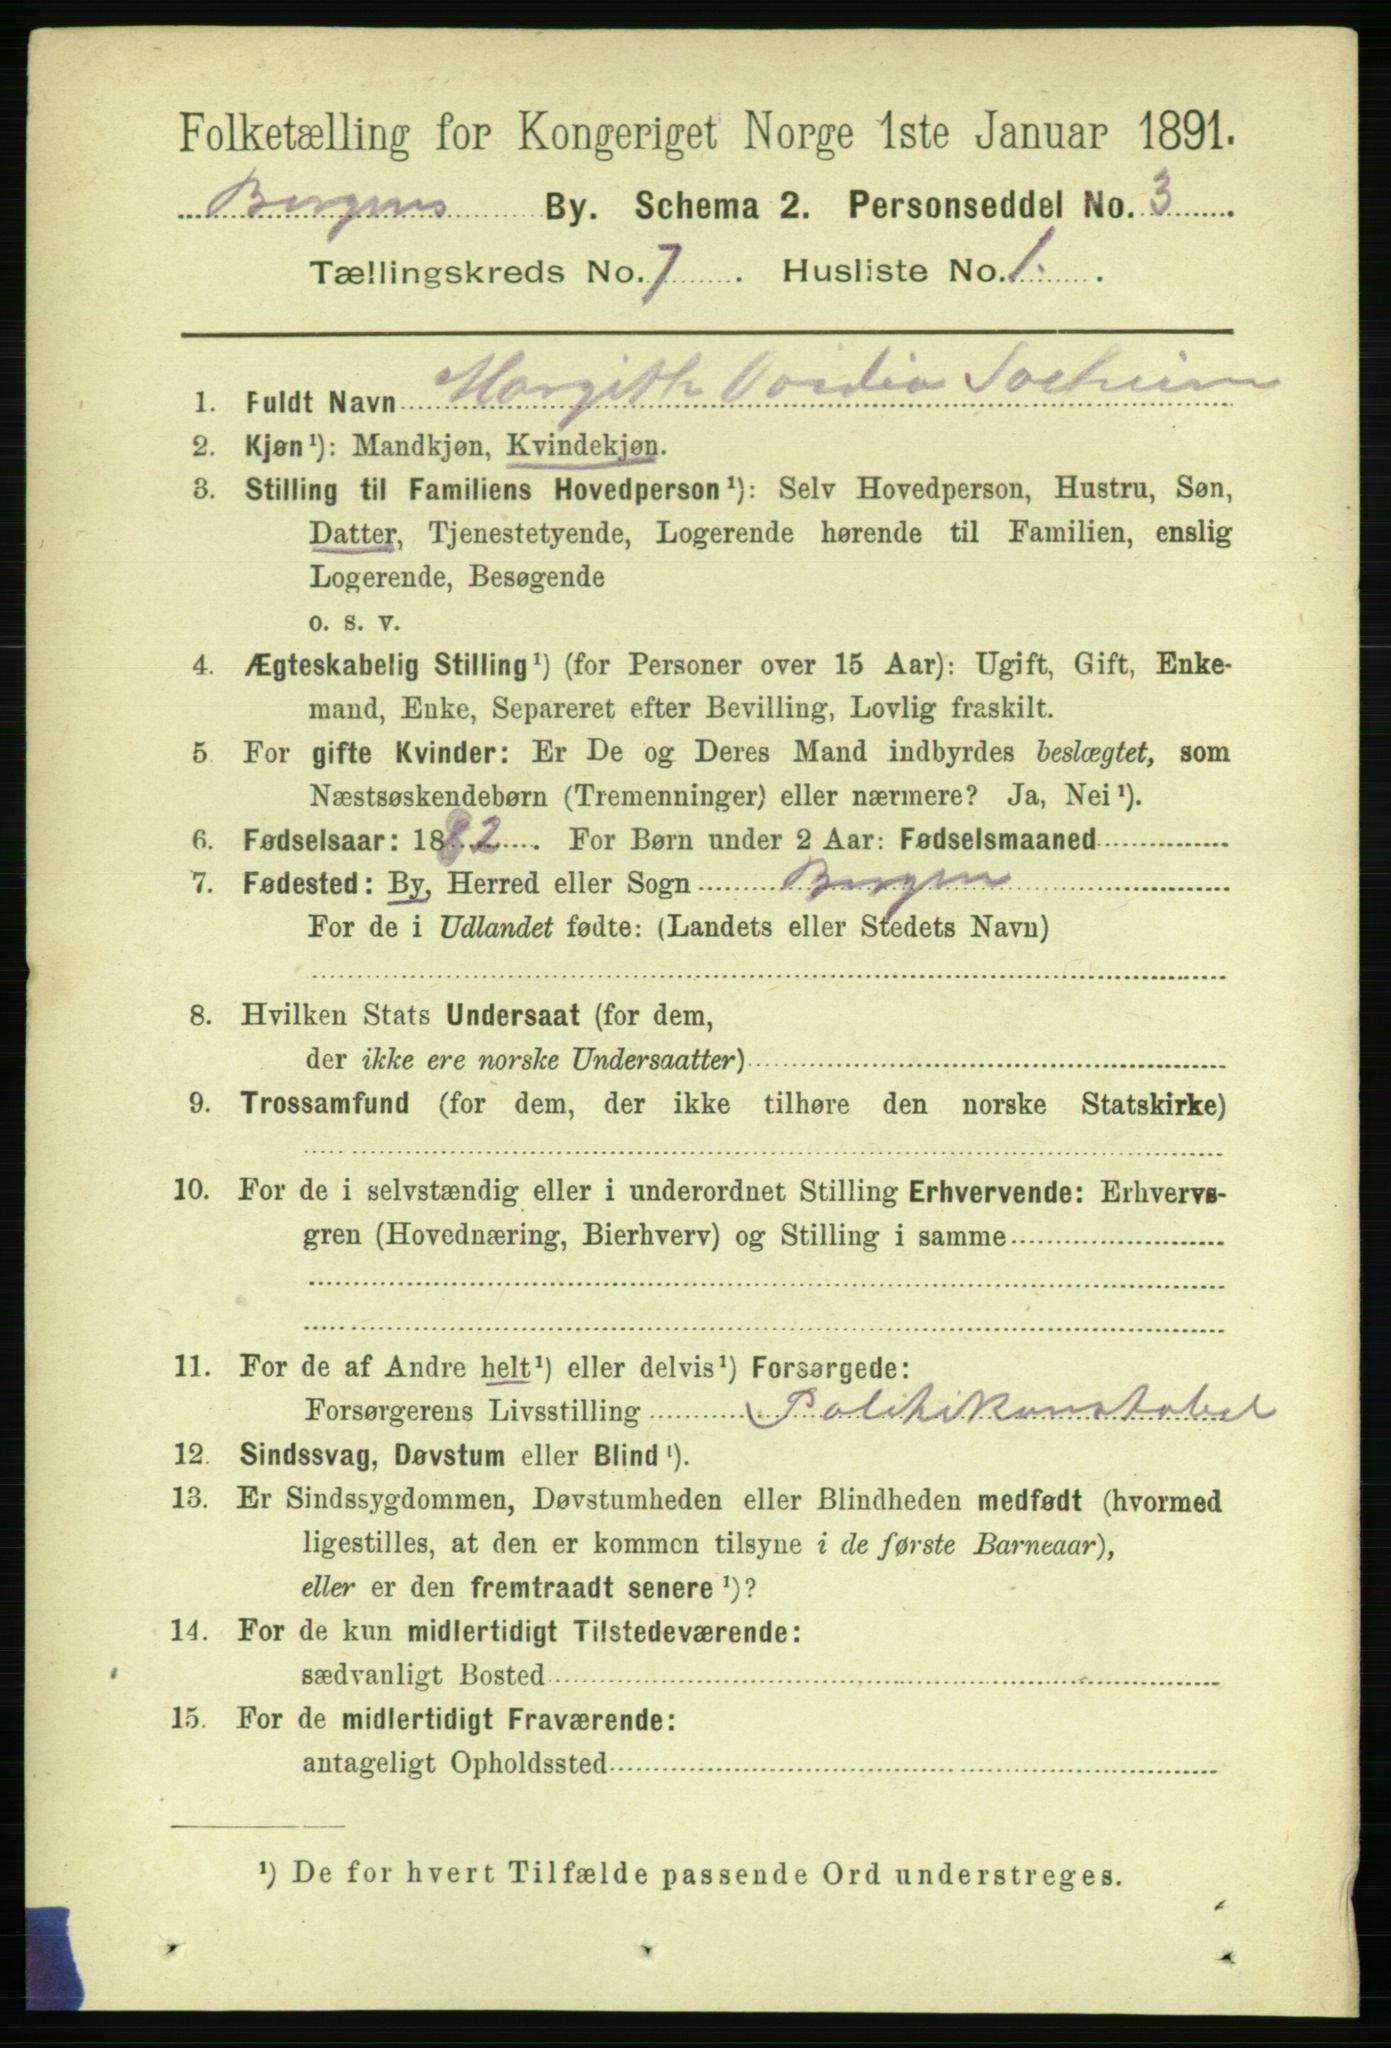 Folketælling for Kongeriget Norge 1ste Januar 1891.
Bergens By. Schema 2. Personseddel No. 3
Tællingskreds No. 7. Husliste No. 1.
1. Fuldt Navn Margith
2. Kjøn¹): Mandkjøn, Kvindekjøn.
3. Stilling til Familiens Hovedperson¹): Selv Hovedperson, Hustru, Søn,
Datter, Tjenestetyende, Logerende hørende til Familien, enslig
Logerende, Besøgende
o. s. v.
4. Ægteskabelig Stilling¹) (for Personer over 15 Aar): Ugift, Gift, Enke-
mand, Enke, Separeret efter Bevilling, Lovlig fraskilt.
5. For gifte Kvinder: Er De og Deres Mand indbyrdes beslægtet, som
Næstsøskendebørn (Tremenninger) eller nærmere? Ja, Nei¹).
6. Fødselsaar: 1882. For Børn under 2 Aar: Fødselsmaaned
7. Fødested: By, Herred eller Sogn Bergen
For de i Udlandet fødte: (Landets eller Stedets Navn)
8. Hvilken Stats Undersaat (for dem,
der ikke ere norske Undersaatter)
9. Trossamfund (for dem, der ikke tilhøre den norske Statskirke)
10. For de i selvstændig eller i underordnet Stilling Erhvervende: Erhvervs-
gren (Hovednæring, Bierhverv) og Stilling i samme
11. For de af Andre helt¹) eller delvis¹) Forsørgede:
Forsørgerens Livsstilling Politikonstabel
12. Sindssvag, Døvstum eller Blind¹).
13. Er Sindssygdommen, Døvstumheden eller Blindheden medfødt (hvormed
ligestilles, at den er kommen tilsyne i de første Barneaar),
eller er den fremtraadt senere¹)?
14. For de kun midlertidigt Tilstedeværende:
sædvanligt Bosted
15. For de midlertidigt Fraværende:
antageligt Opholdssted
¹) De for hvert Tilfælde passende Ord understreges.